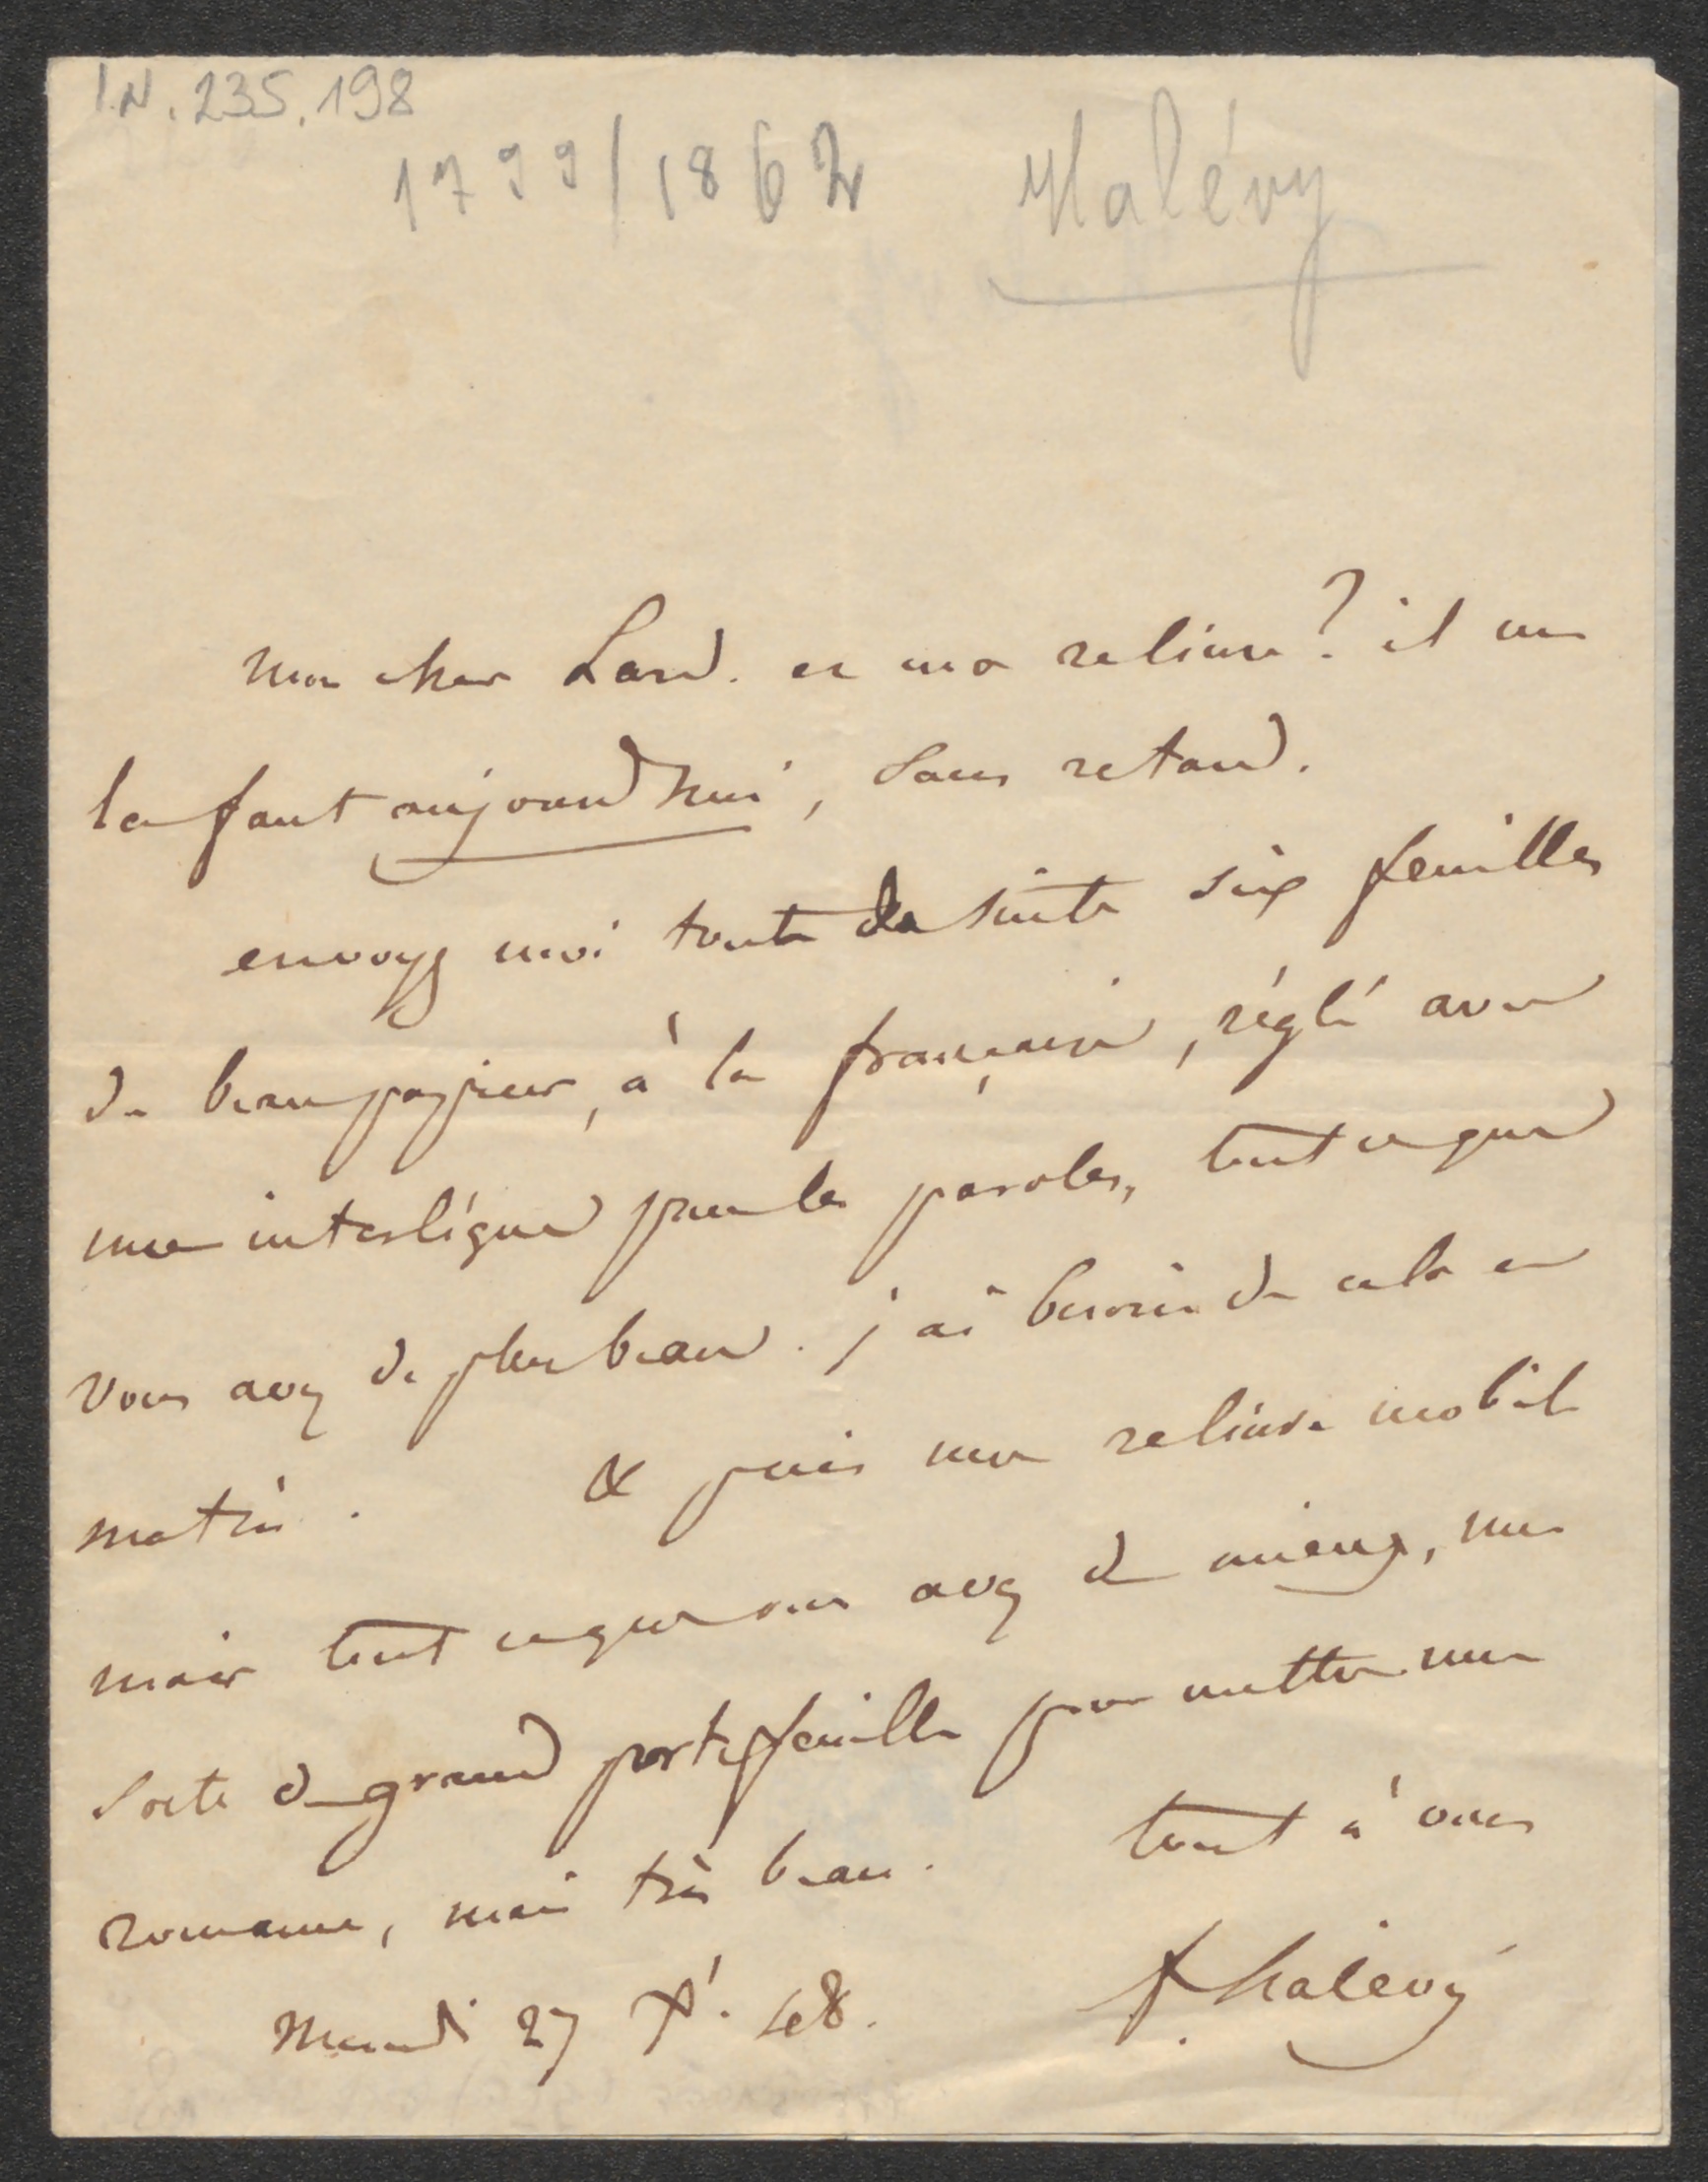 I.N. 235.198
1799/1862 Halévy
mon cher Lard. et ma reliure? il me
la faut aujourd'hui, sans retard.
envoyez moi toute de suite six feuilles
de beau papier, à la française, réglé avec
une interligne pour les paroles, tout ce que
vous avez de plus beau. j'ai besoin de cela ce
matin. & puis une reliure mobile
mais tout ce que vous avez de mieux, une
sorte de grand portefeuille pour mettre une
romance, mais très beau. tout à vous
Mercredi 27 Xb. 48. f. halévy